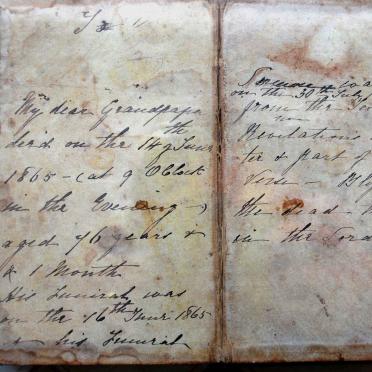 My dear Grandpapa
died on the 14th June
1865 - (at 9 O'Clock
in the Evening -)
aged 76 years &
& 1 Month
His Funeral was
on the 16th June 1865
& his Funeral
Sermon was
on the 30th July
from the
Revelations
ter & part of
Verse - Bl
the dead -
in the Lord